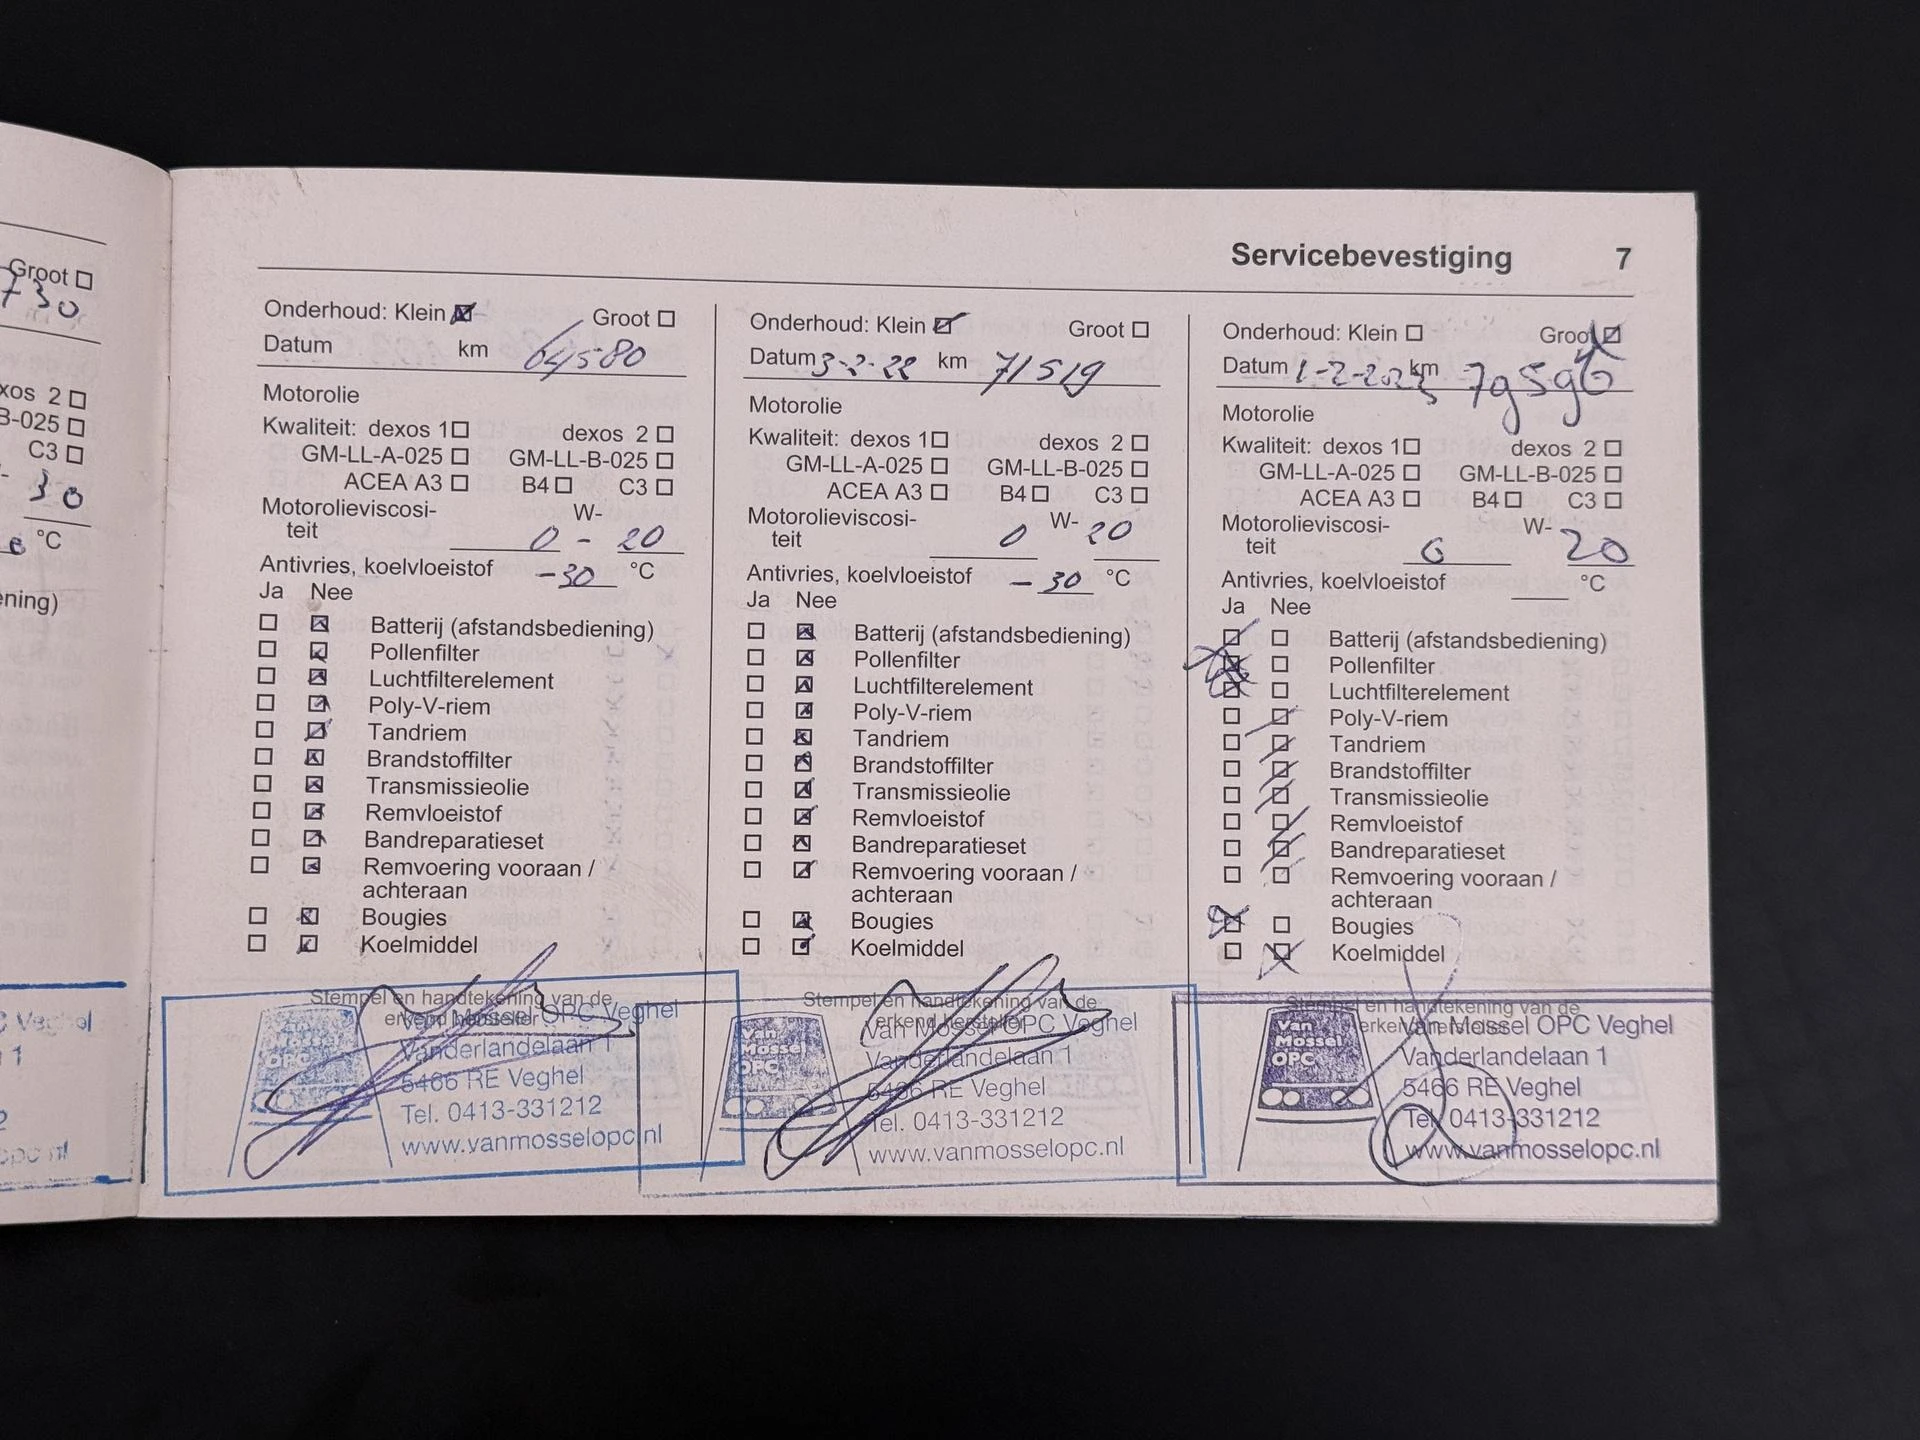 Groot
730
xos 2
B-025
C3
30
°C
ening)
C Veghel
1
2
Servicebevestiging 7
Onderhoud: Klein Groot
Datum km 64580
Motorolie
Kwaliteit: dexos 1 dexos 2
GM-LL-A-025 GM-LL-B-025
ACEA A3 B4 C3
Motorolieviscosi- W-
teit 0 - 20
Antivries, koelvloeistof -30 °C
Ja Nee
Batterij (afstandsbediening)
Pollenfilter
Luchtfilterelement
Poly-V-riem
Tandriem
Brandstoffilter
Transmissieolie
Remvloeistof
Bandreparatieset
Remvoering vooraan /
achteraan
Bougies
Koelmiddel
Stempel en handtekening van de
erkend hersteller
Van Mossel OPC Veghel
Vanderlandelaan 1
5466 RE Veghel
Tel. 0413-331212
www.vanmosselopc.nl
Onderhoud: Klein Groot
Datum 3-2-22 km 71519
Motorolie
Kwaliteit: dexos 1 dexos 2
GM-LL-A-025 GM-LL-B-025
ACEA A3 B4 C3
Motorolieviscosi- W-
teit 0 20
Antivries, koelvloeistof - 30 °C
Ja Nee
Batterij (afstandsbediening)
Pollenfilter
Luchtfilterelement
Poly-V-riem
Tandriem
Brandstoffilter
Transmissieolie
Remvloeistof
Bandreparatieset
Remvoering vooraan /
achteraan
Bougies
Koelmiddel
Stempel en handtekening van de
erkend hersteller
Van Mossel OPC
Van Mossel OPC Veghel
Vanderlandelaan 1
5466 RE Veghel
Tel. 0413-331212
www.vanmosselopc.nl
Onderhoud: Klein Groot
Datum 1-2-2023 km 79596
Motorolie
Kwaliteit: dexos 1 dexos 2
GM-LL-A-025 GM-LL-B-025
ACEA A3 B4 C3
Motorolieviscosi- W-
teit 0 20
Antivries, koelvloeistof °C
Ja Nee
Batterij (afstandsbediening)
Pollenfilter
Luchtfilterelement
Poly-V-riem
Tandriem
Brandstoffilter
Transmissieolie
Remvloeistof
Bandreparatieset
Remvoering vooraan /
achteraan
Bougies
Koelmiddel
Stempel en handtekening van de
erkend hersteller
Van
Mossel
OPC
Van Mossel OPC Veghel
Vanderlandelaan 1
5466 RE Veghel
Tel. 0413-331212
www.vanmosselopc.nl